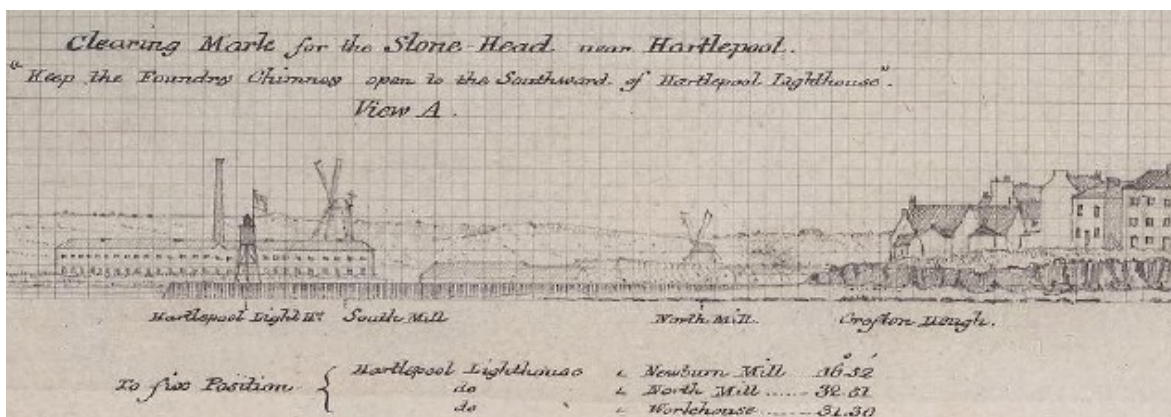 Clearing Mark for the Stone Head near Hartlepool.
"Keep the Foundry Chimney open to the Southward of Hartlepool Lighthouse".
View A.
Hartlepool Light Hs. South Mill North Mill. Crofton Heugh.
To fix Position { Hartlepool Lighthouse & Newburn Mill 16° 52'
do & North Mill ...... 32.51
do & Workhouse ...... 31.30